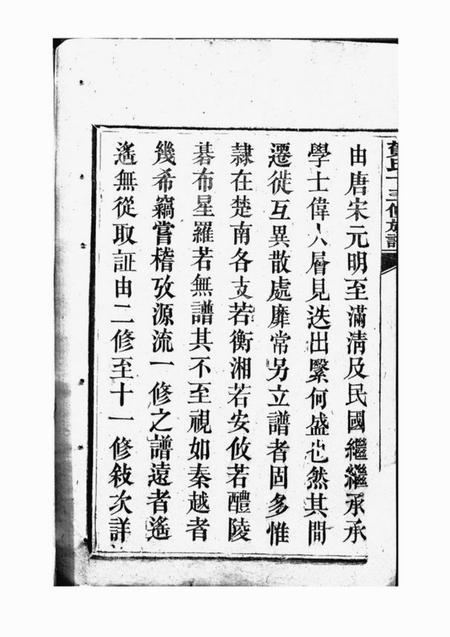 由唐宋元明至滿清及民國繼繼承承
學士偉人層見迭出緊何盛也然其間
遷徙互異散處靡常另立譜者固多惟
隷在楚南各支若衡湘若安攸若醴陵
碁布星羅若無譜其不至視如秦越者
幾希竊嘗稽攷源流一修之譜遠者遙
遙無從取証由二修至十一修敍次詳